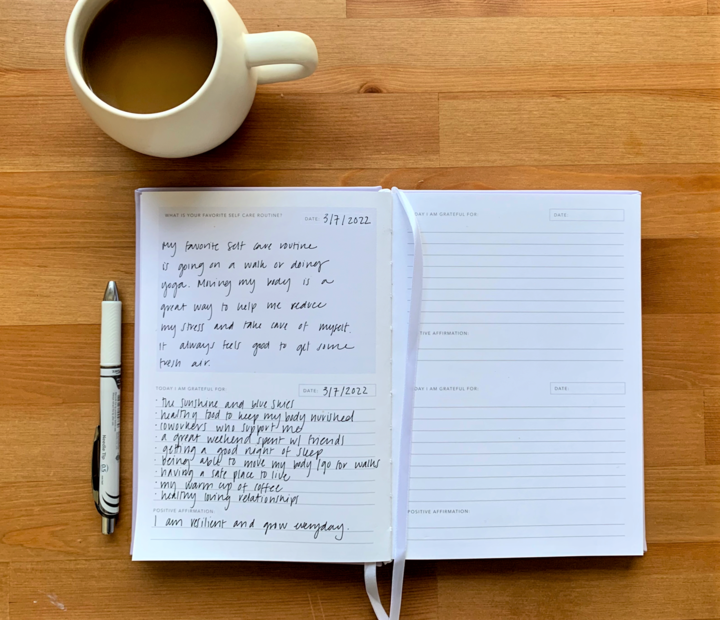 WHAT IS YOUR FAVORITE SELF CARE ROUTINE?
DATE: 3/7/2022
My favorite self care routine
is going on a walk or doing
yoga. Moving my body is a
great way to help me reduce
my stress and take care of myself.
it always feels good to get some
fresh air.
TODAY I AM GRATEFUL FOR:
DATE: 3/7/2022
· the sunshine and blue skies
· healthy food to keep my body nurished
· coworkers who support me
· a great weekend spent w/ friends
· getting a good night of sleep
· being able to move my body / go for walks
· having a safe place to live
· my warm cup of coffee
· healthy loving relationships
POSITIVE AFFIRMATION:
I am resilient and grow everyday.
DAY I AM GRATEFUL FOR:
DATE:
ITIVE AFFIRMATION:
DAY I AM GRATEFUL FOR:
DATE:
POSITIVE AFFIRMATION: